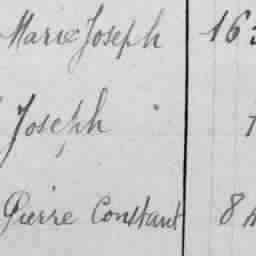 Marie Joseph 16
Joseph
Pierre Constant 8